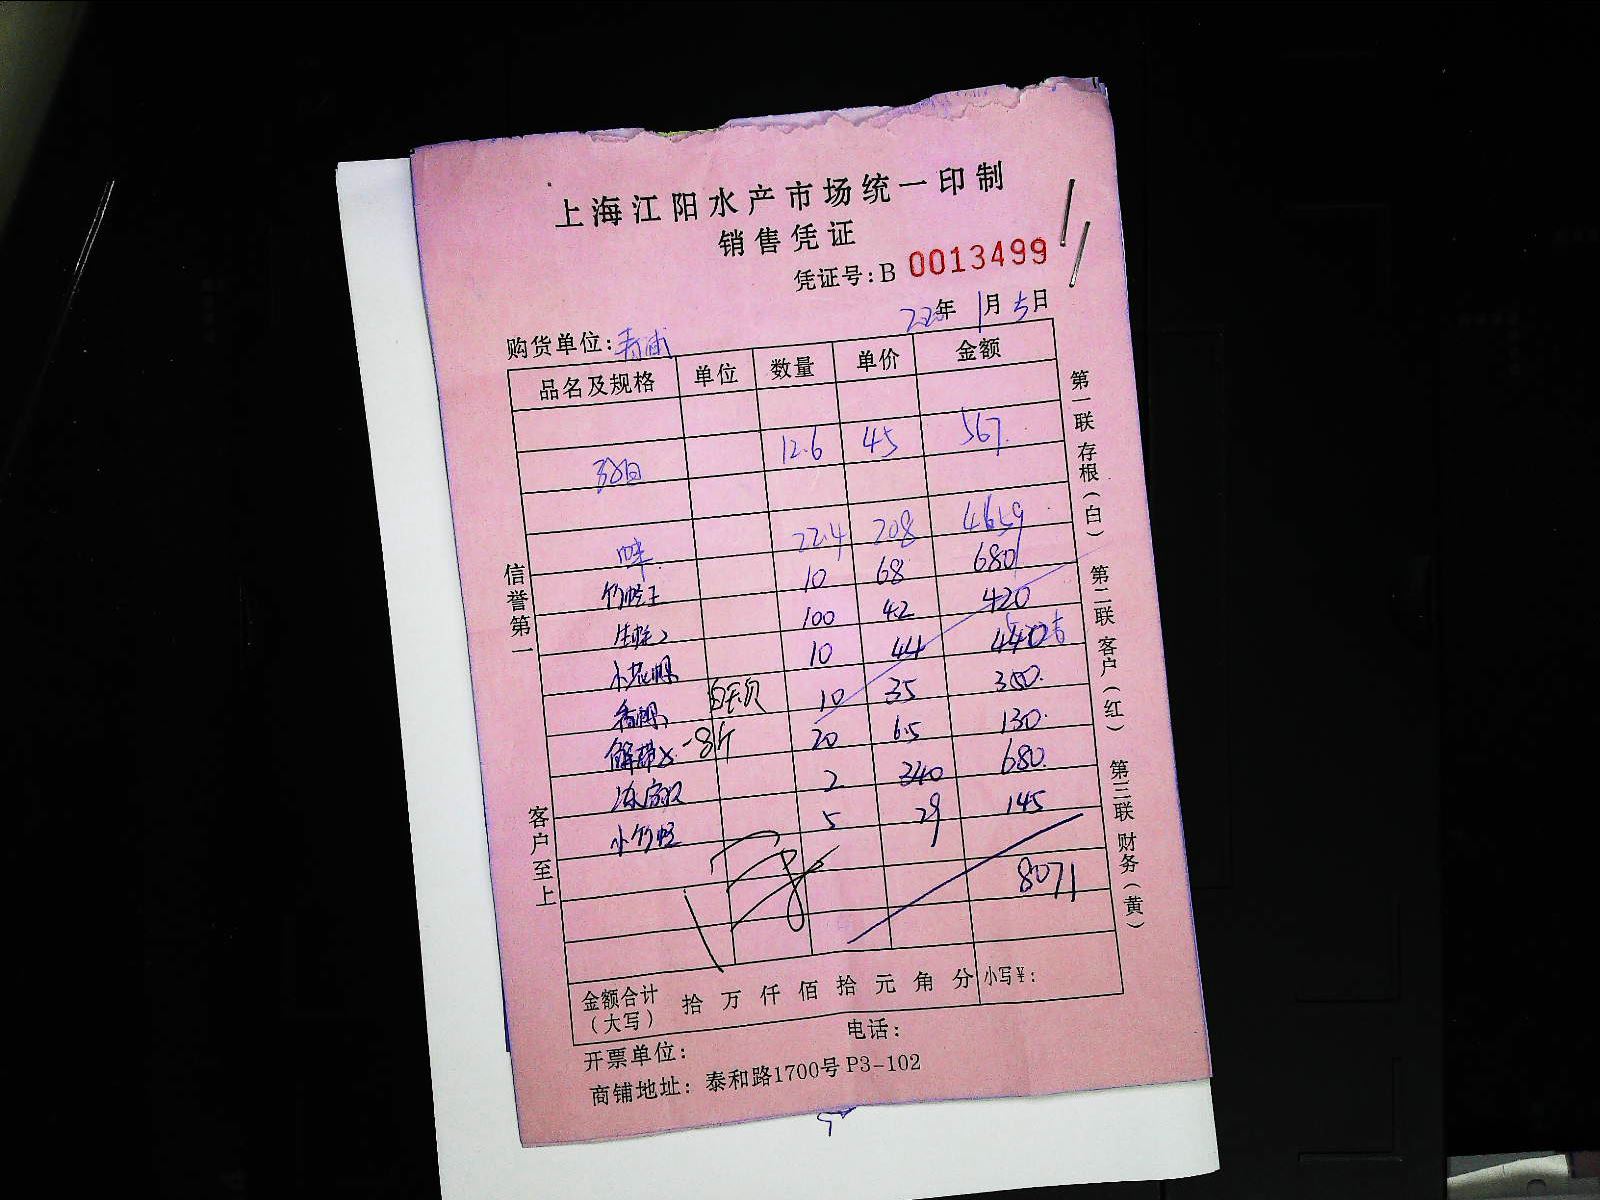 上海江阳水产市场统一印制
销售凭证
凭证号:B 0013499
22年 1月 5日
购货单位:青浦
品名及规格 单位 数量 单价 金额
12.6 45 567.
22.4 208 4659
竹蛏王 10 68 680
生蚝 100 4.2 420
10 44 440
10 35 350.
20 6.5 130.
2 340 680.
小竹蛏 5 29 145
8071
金额合计(大写) 拾 万 仟 佰 拾 元 角 分 小写¥:
开票单位: 电话:
商铺地址: 泰和路1700号P3-102
信誉第一
客户至上
第一联 存根(白) 第二联 客户(红) 第三联 财务(黄)